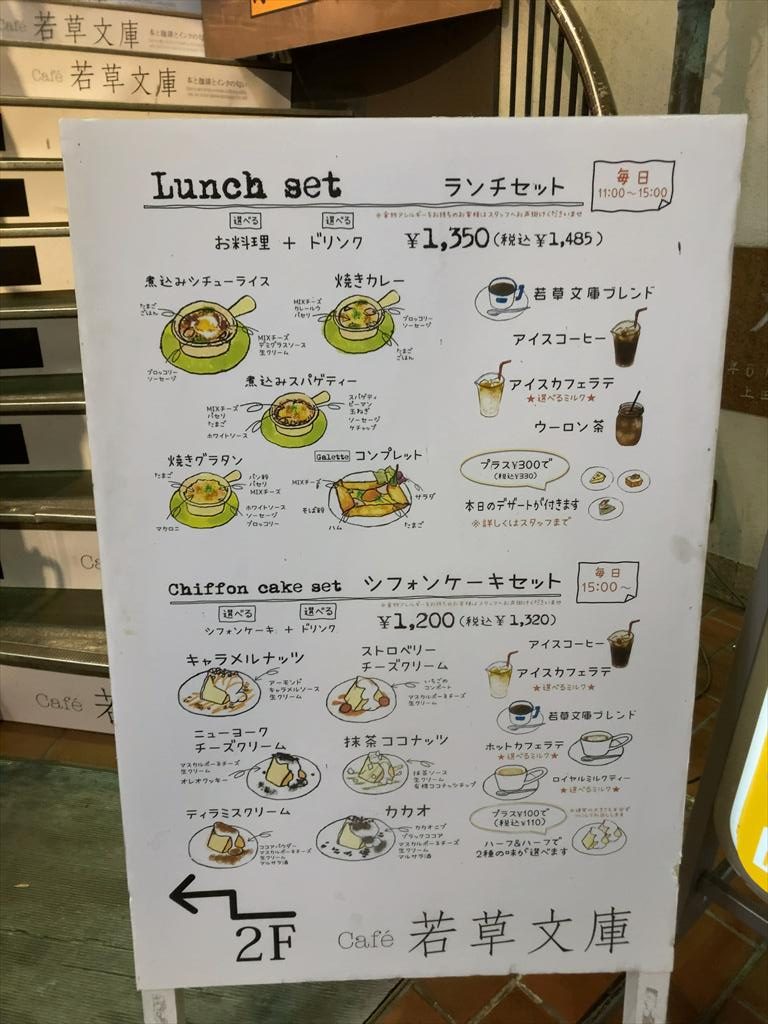 Café 若草文庫
Café 若草文庫
Lunch set ランチセット
毎日
11:00～15:00
※食物アレルギーをお持ちのお客様はスタッフへお声掛けくださいませ
選べる 選べる
お料理 + ドリンク ¥1,350(税込¥1,485)
煮込みシチューライス
たまご
ごはん
MIXチーズ
デミグラスソース
生クリーム
ブロッコリー
ソーセージ
焼きカレー
MIXチーズ
カレールウ
パセリ
ブロッコリー
ソーセージ
たまご
ごはん
煮込みスパゲティー
MIXチーズ
パセリ
たまご
ホワイトソース
スパゲティ
ピーマン
玉ねぎ
ソーセージ
ケチャップ
焼きグラタン
たまご
パン粉
パセリ
MIXチーズ
ホワイトソース
ソーセージ
ブロッコリー
マカロニ
Galette コンプレット
MIXチーズ
そば粉
ハム
サラダ
たまご
若草文庫ブレンド
アイスコーヒー
アイスカフェラテ
★選べるミルク★
ウーロン茶
プラス¥300で
(税込¥330)
本日のデザートが付きます
※詳しくはスタッフまで
Chiffon cake set シフォンケーキセット
毎日
15:00～
※食物アレルギーをお持ちのお客様はスタッフへお声掛けくださいませ
選べる 選べる
シフォンケーキ + ドリンク ¥1,200(税込¥1,320)
キャラメルナッツ
アーモンド
キャラメルソース
生クリーム
ストロベリー
チーズクリーム
いちごの
コンポート
マスカルポーネチーズ
生クリーム
ニューヨーク
チーズクリーム
マスカルポーネチーズ
生クリーム
オレオクッキー
抹茶ココナッツ
抹茶ソース
生クリーム
有機ココナッツチップ
ティラミスクリーム
ココアパウダー
マスカルポーネチーズ
生クリーム
マルサラ酒
カカオ
カカオニブ
ブラックココア
マスカルポーネチーズ
生クリーム
マルサラ酒
アイスコーヒー
アイスカフェラテ
★選べるミルク★
若草文庫ブレンド
ホットカフェラテ
★選べるミルク★
ロイヤルミルクティー
★選べるミルク★
プラス¥100で
(税込¥110)
ハーフ&ハーフで
2種の味が選べます
2F
Café 若草文庫